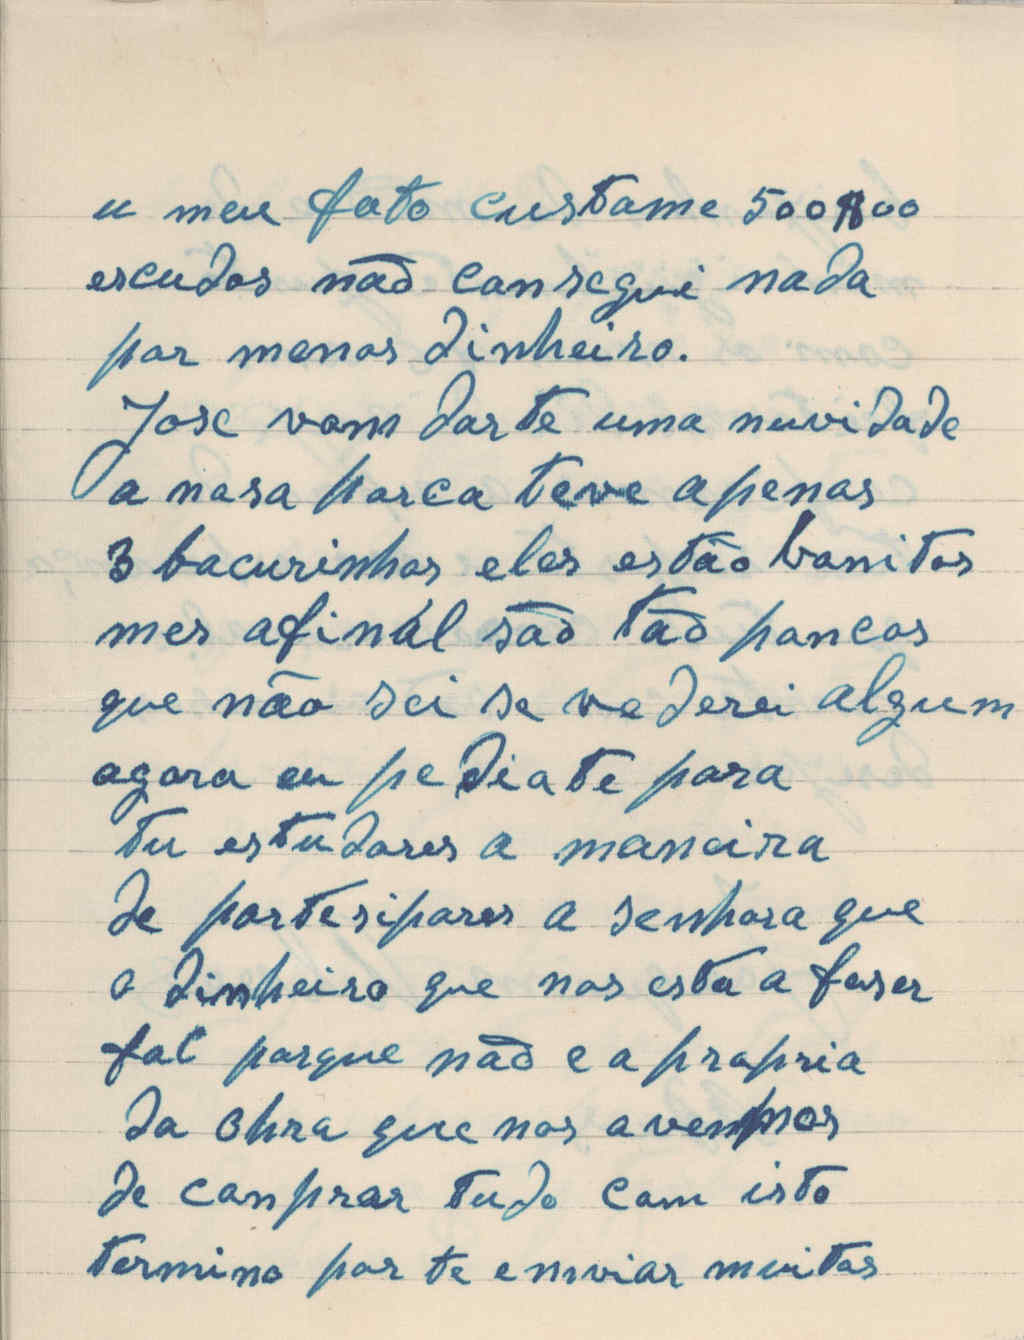 u meu fato custame 500$00
escudos não consegui nada
por menos dinheiro.
Jose vom darte uma nuvidade
a nosa porca teve apenas
3 bacurinhos eles estão bonitos
mes afinál são tão poucos
que não sei se vederei algum
agora eu pediate para
tu estudares a maneira
de partesipares a senhora que
o dinheiro que nos esta a faser
fal porque não e a propria
da obra que nos avenmos
de conprar tudo com isto
termino por te enviar muitos